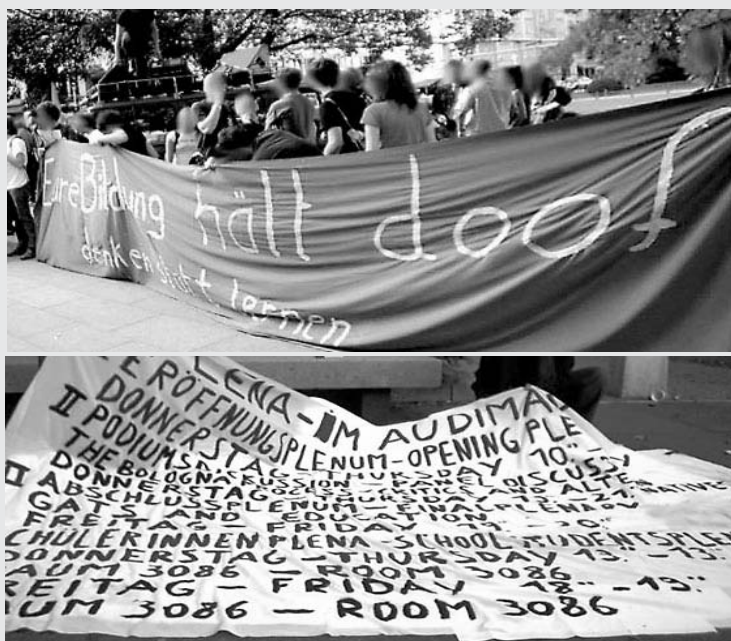 Eure Bildung hält doof
denken statt lernen
PLENA-IM AUDIMAX
ERÖFFNUNGSPLENUM-OPENING PLE
DONNERSTAG-THURSDAY 10.-
II PODIUMSDISKUSSION-PANEL DISCUSSY
THE BOLOGNA CRITICS AND ALTERNATIVE
DONNERSTAG THURSDAY 21.
II ABSCHLUSSPLENUM-FINAL PLENARY
GATS AND EDUCATION
FREITAG - FRIDAY
SCHULERINNENPLENA-SCHOOL STUDENTSPLEN
DONNERSTAG-THURSDAY 13."-13."
AUM 3086-ROOM 3086
REITAG-FRIDAY 18"-19."
UM 3086-ROOM 3086